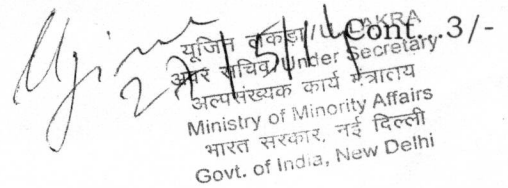 Cont...3/-
यूजिन लकड़ा/U. LAKRA
अवर सचिव/Under Secretary
अल्पसंख्यक कार्य मंत्रालय
Ministry of Minority Affairs
भारत सरकार, नई दिल्ली
Govt. of India, New Delhi
27/5/14